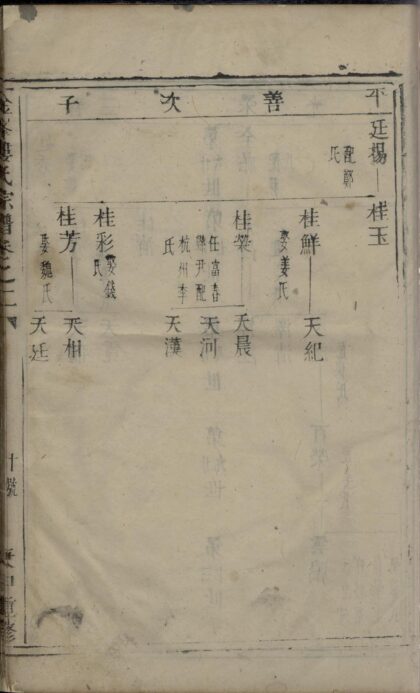 善次子
廷楊
配鄭
氏
桂玉
桂鮮
娶姜氏
天紀
桂榮
任富春
縣尹配
杭州李
氏
天晨
天河
天漢
桂彩
娶錢
氏
桂芳
娶魏氏
天相
天廷
氏宗譜卷之二
十號